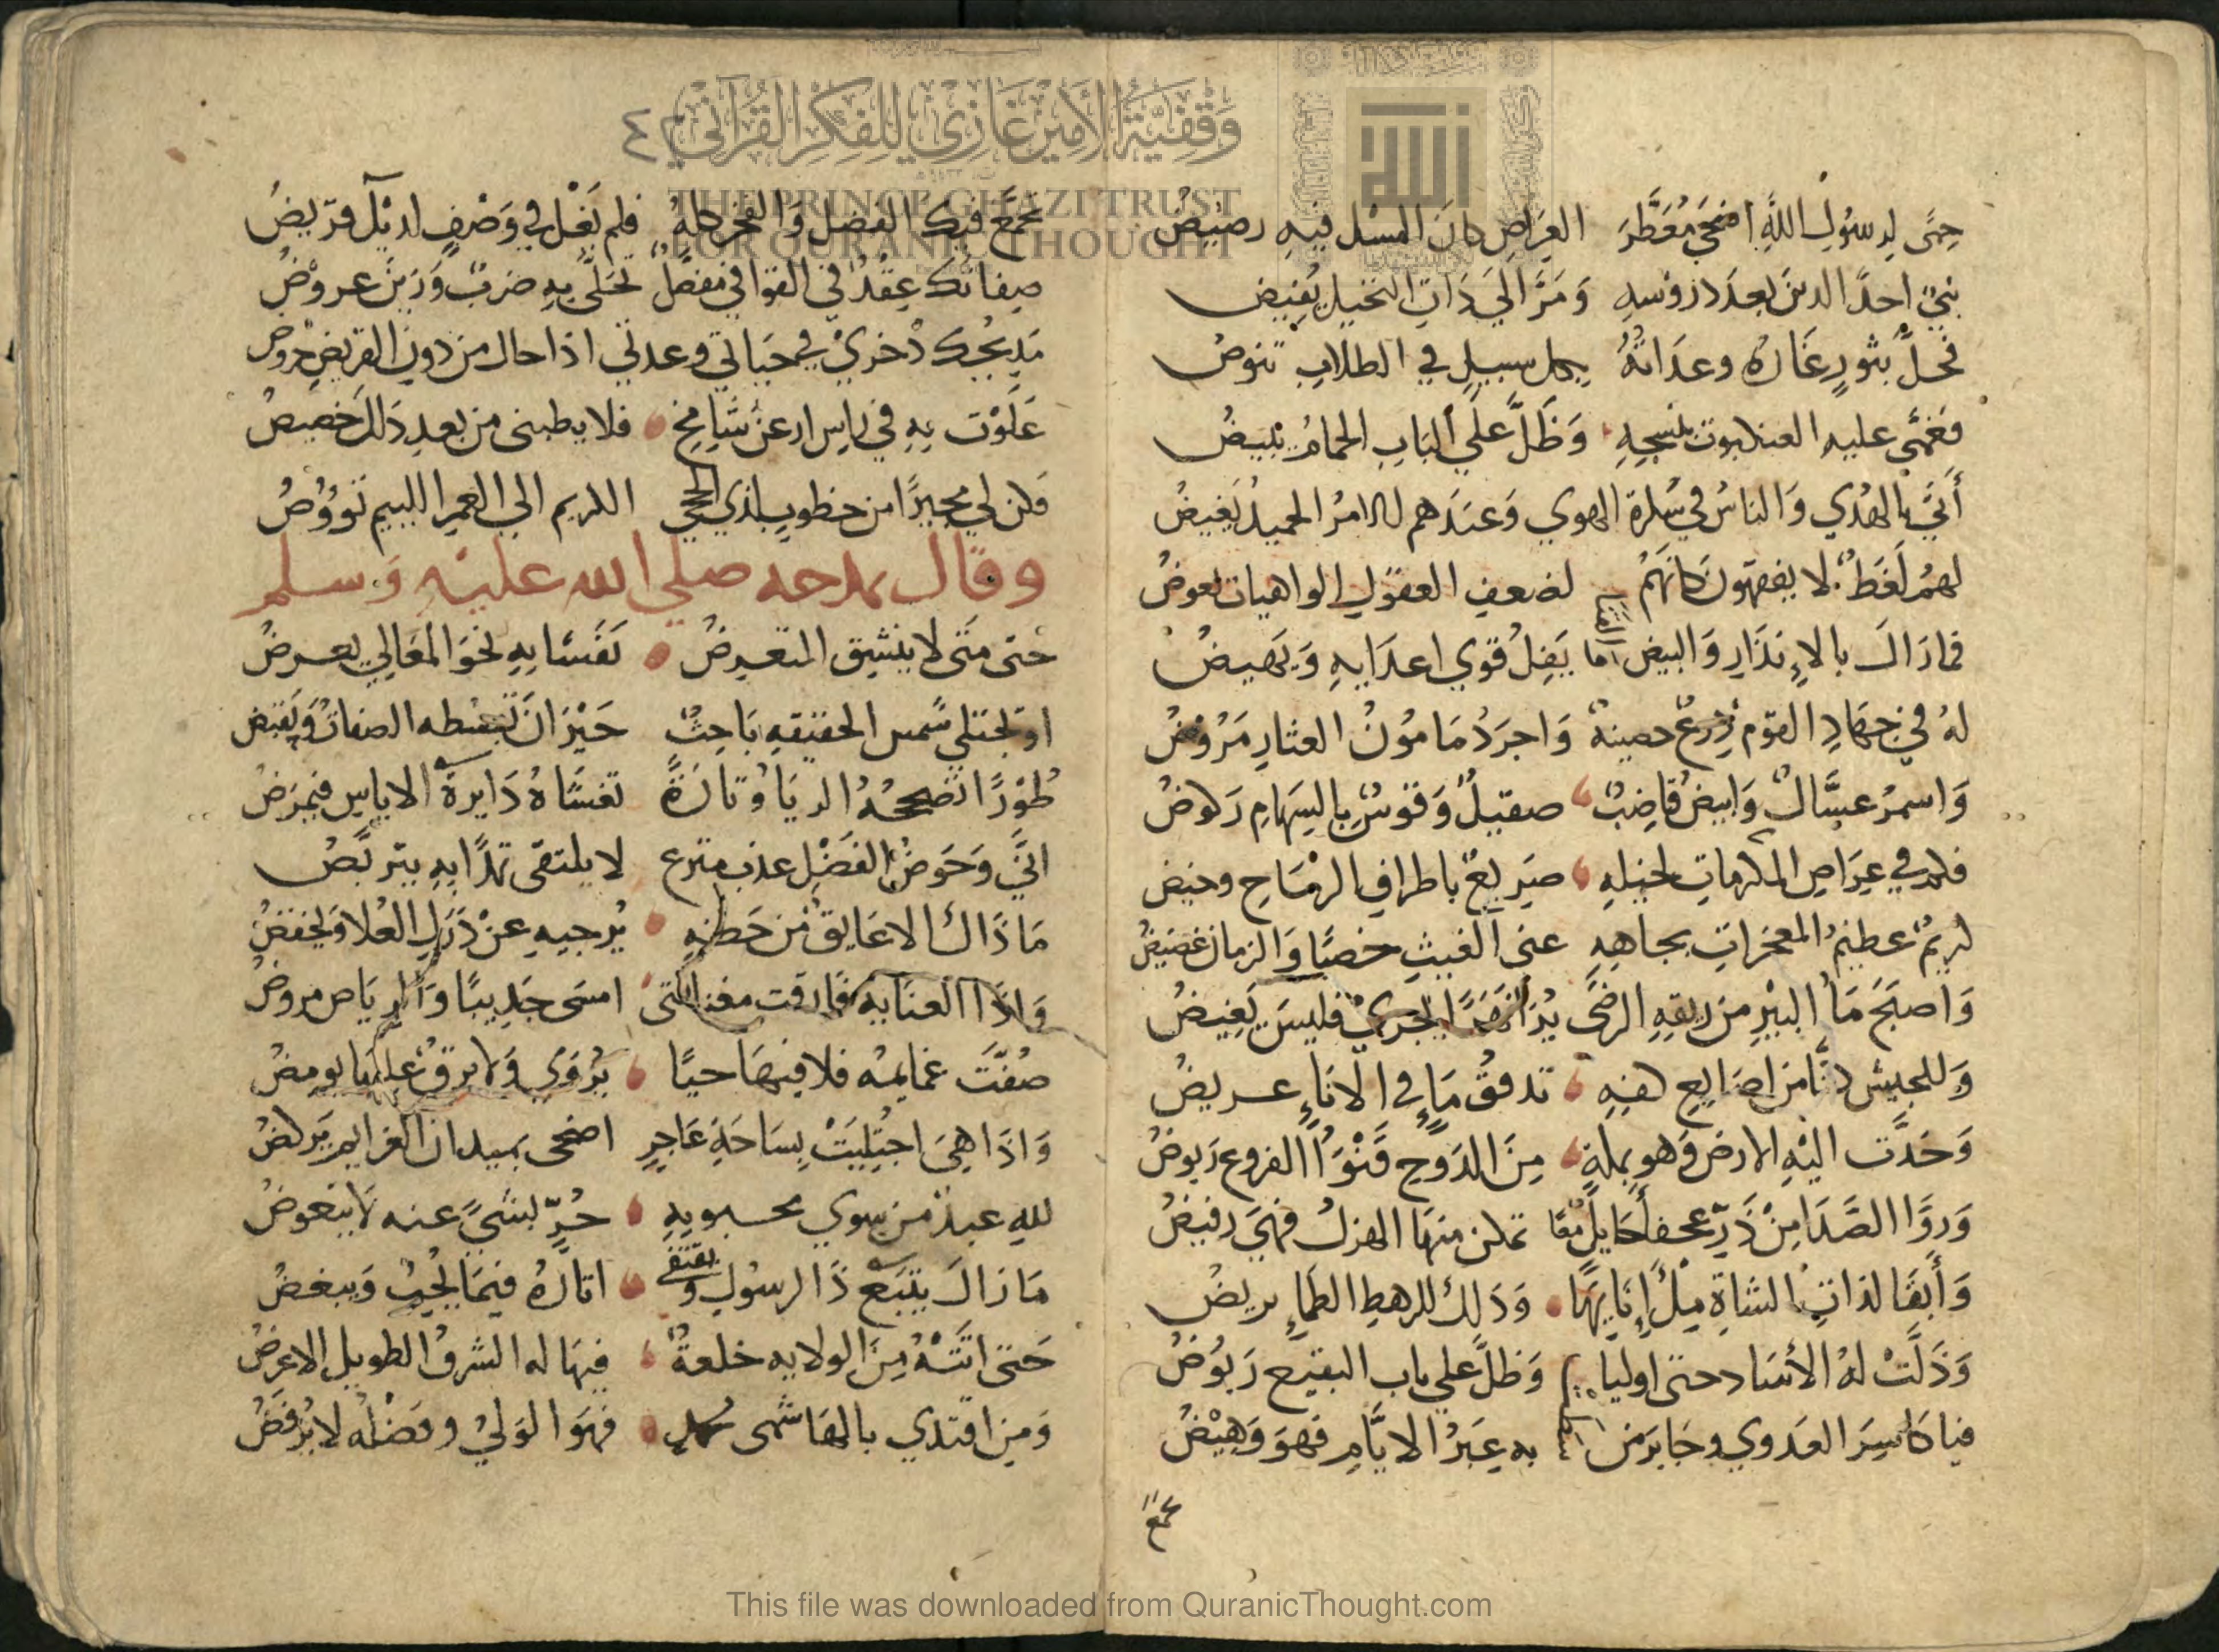 وقفية الأمير غازي للفكر القرآني
THE PRINCE GHAZI TRUST
FOR QURANIC THOUGHT
حمى لرسول الله اضحى معطر العراص كان المسك فيه رضيض
نبي احد الدين بعد دروسه ومر الى ذات النخيل يفيض
فحل بثور غاره وعداته بكل سبيل في الطلاب تنوض
فغمى عليه العنكبوت بنسجه وظل علي الباب الحمام يبيض
أتى بالهدي والناس في سكرة الهوي وعندهم للامر الحميد يغيض
لهم لغط لا يفقهون كانهم لضعف العقول الواهيات بعوض
فما زال بالإنذار والبيض يفل قوي اعدايه ويهيض
له في جهاد القوم درع حصينة واجرد مامون العثار مروض
واسمر عسال وابيض قاضب صقيل وقوس بالسهام ركوض
فكم في عراص المكرمات لخيله صريع باطراف الرماح وخيض
كريم عظيم المعجزات بجاهه عنى الغيث خصبا والزمان غضيض
واصبح ماء البير من ريقه الرضى يجري فليس يغيض
وللجيش من اصابع كفه تدفق ماء في الاناء عريض
وخدت اليه الارض وهو بمكة من الدوح قنواء الفروع ربوض
وروا الصدا من در عجفا حايل تمكن منها الهزل فهي رفيض
وأبقا لذات الشاة ملء إنايها وذلك للرهط الظماء يريض
وذلت له الأساد حتى اوليا وظل علي باب البقيع ربوض
فيا كاسر العدوي وجابر من به غير الايام فهو وهيض
تجمع
تجمع فيك الفضل والفخر كله فلم يغل في وصف لديك قريض
صفاتك عقد في القوافي مفصل تحلى به ضرب وزين عروض
مديحك ذخري في حياتي وعدتي اذا حال من دون القريض جروض
علوت به في راس ارعن شامخ فلا يطبنى من بعد ذلك خضيض
فكن لي مجيرا من خطوب لذي الحجى الكريم الى الغمر اللييم تووض
وقال يمدحه صلي الله عليه وسلم
حتى متى لا ينثيق المتعرض نفسا به نحو المعالي يعرض
او تجتلي شمس الحقيقه باحث حيران تبسطه الصفات ويقبض
طورا تصححه الريا وتارة تغشاه دايرة الاياس فيمرض
انى وحوض الفضل عذب مترع لا يلتقى تمدا به يتربض
ما ذاك الا عايق من حظه يرجيه عن درك العلا ويخفض
واذا العنايه فارقت مغنى الفتى امسى جديبا والرياض مروض
صفت غمايمه فلا فيها حيا يروي ولا برق عليها يومض
واذا هي اجتليت بساحة عاجز اضحى بميدان العزايم يركض
لله عبد من سوي محبوبه حر بشيء عنه لا يتعوض
ما زال يتبع ذا الرسول ويقتفي اثاره فيما يحب ويبغض
حتى اتته من الولايه خلعة فيها له الشرف الطويل الاعرض
ومن اقتدي بالهاشمى محمد فهو الولي وفضله لا يرفض
This file was downloaded from QuranicThought.com